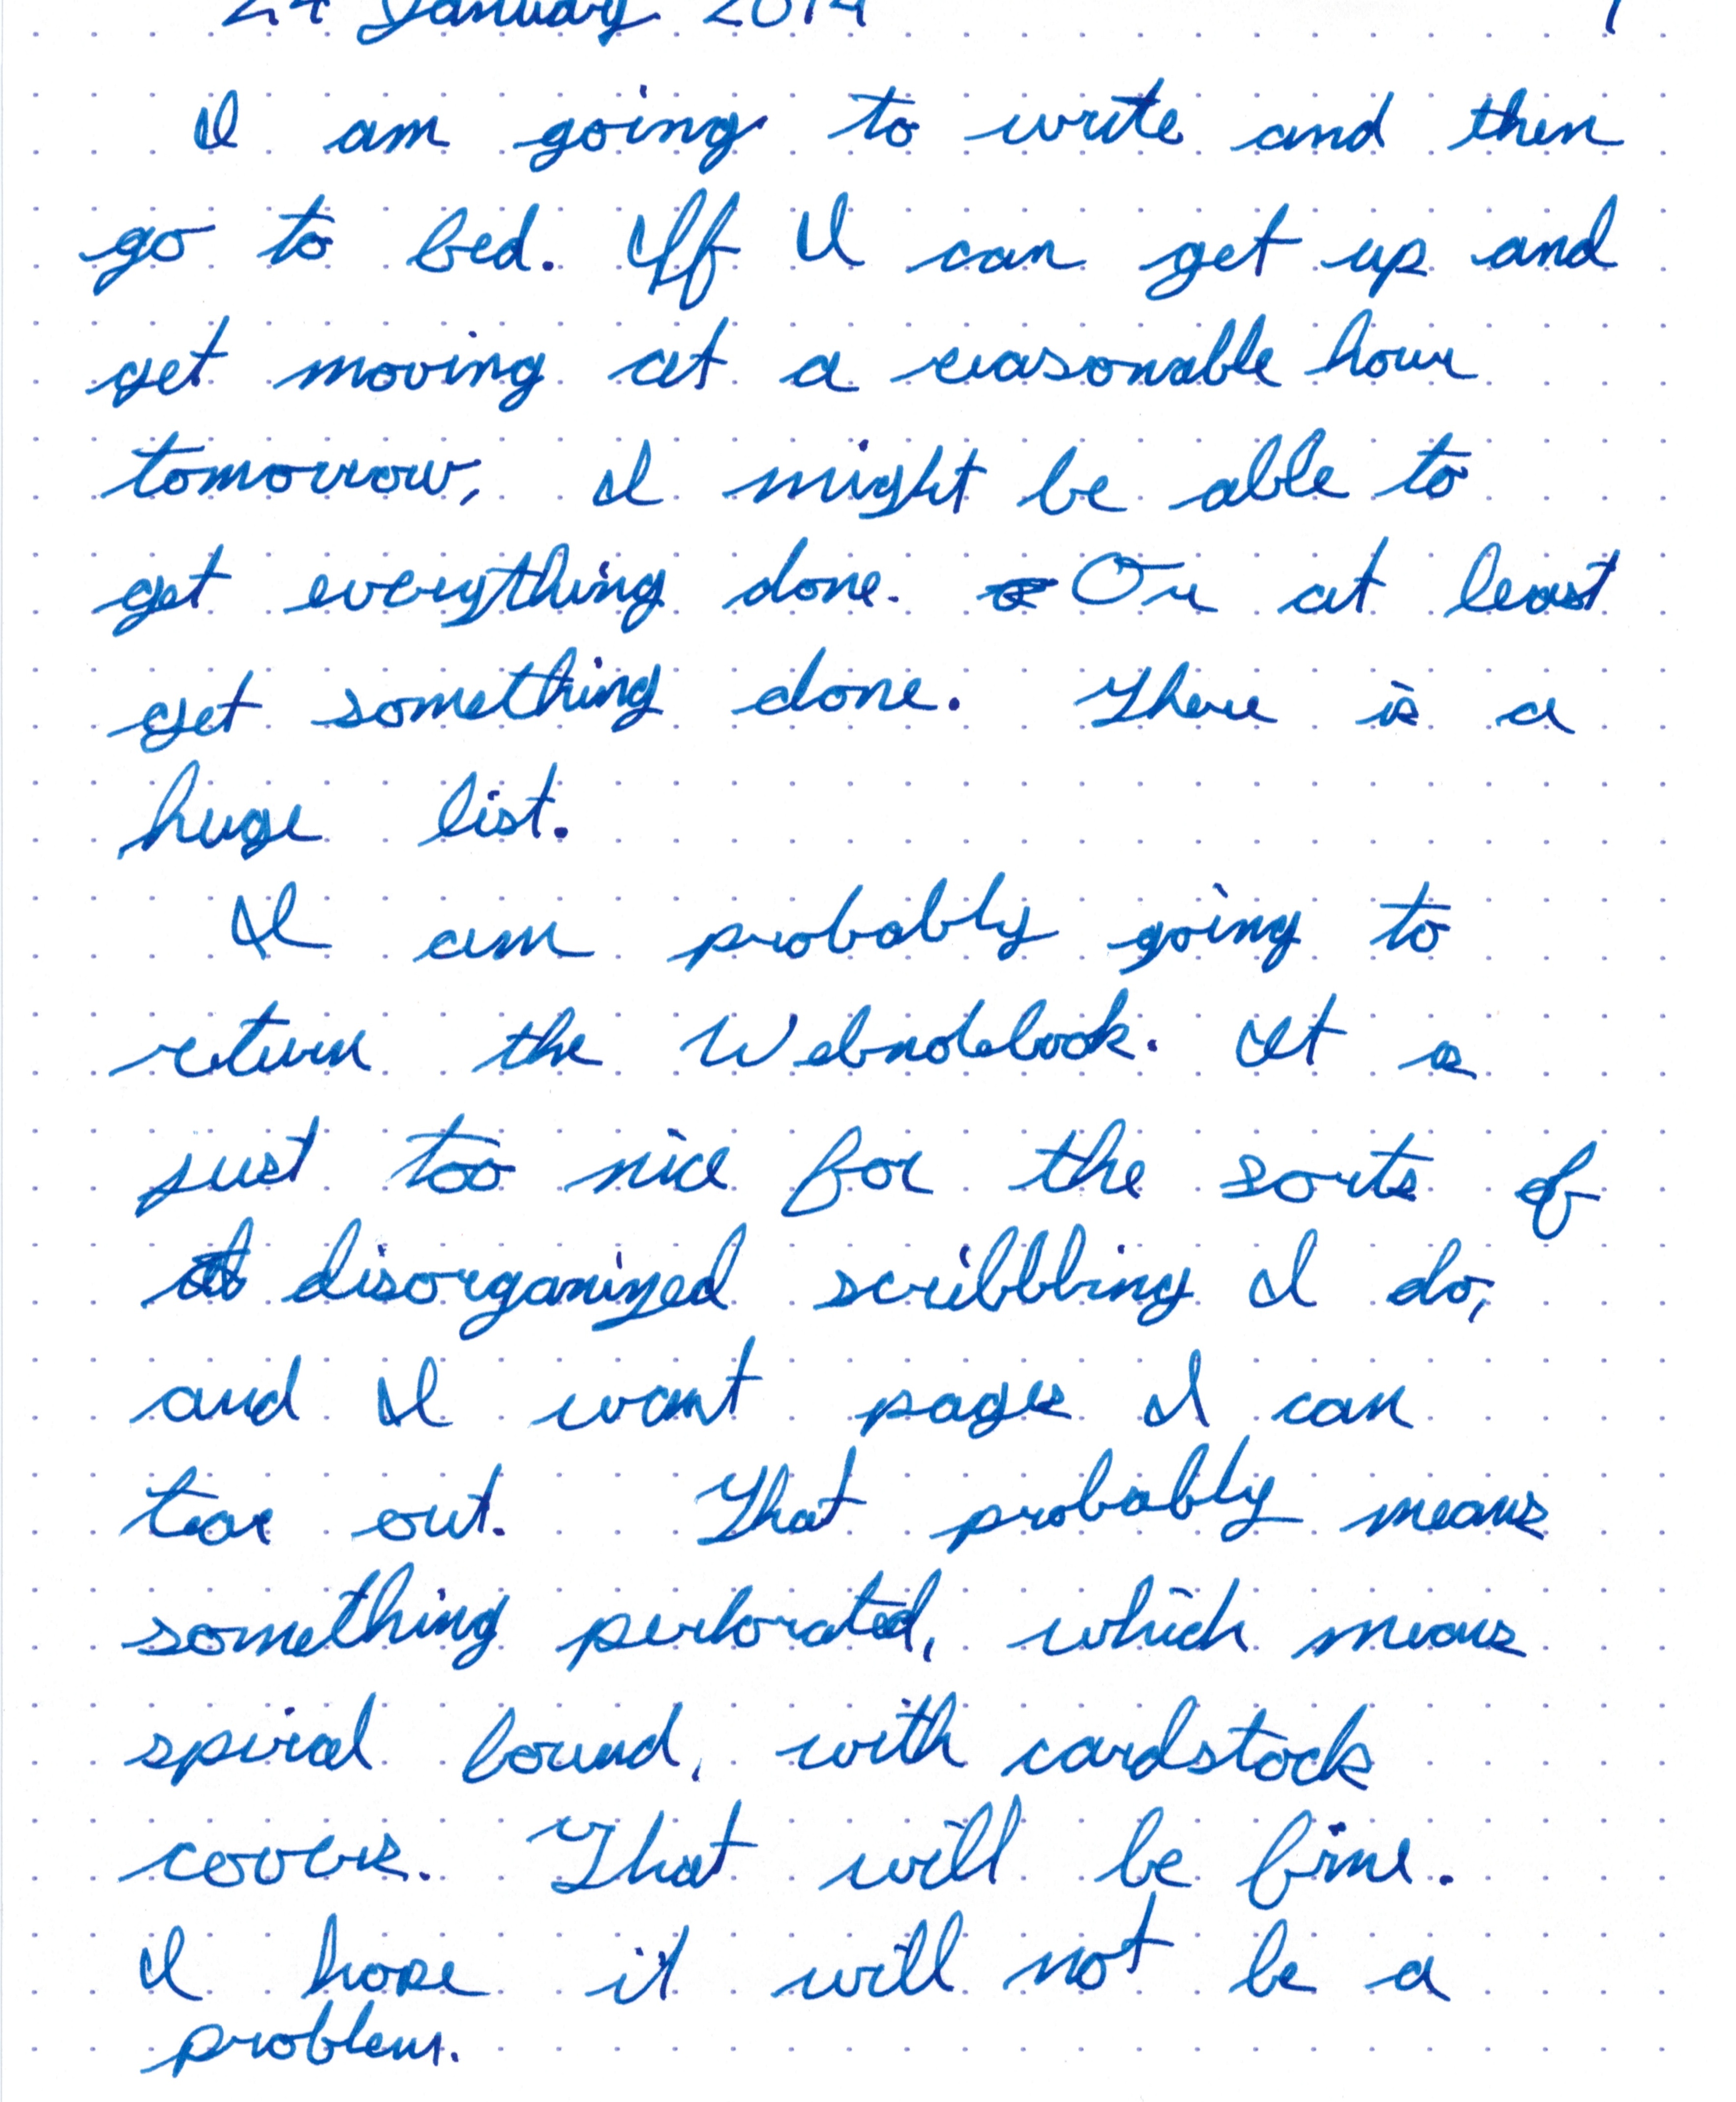 24 January 2014 1
I am going to write and then
go to bed. If I can get up and
get moving at a reasonable hour
tomorrow, I might be able to
get everything done. Or at least
get something done. There is a
huge list.
I am probably going to
return the Webnotebook. It is
just too nice for the sorts of
disorganized scribbling I do,
and I want pages I can
tear out. That probably means
something perforated, which means
spiral bound, with cardstock
covers. That will be fine.
I hope it will not be a
problem.